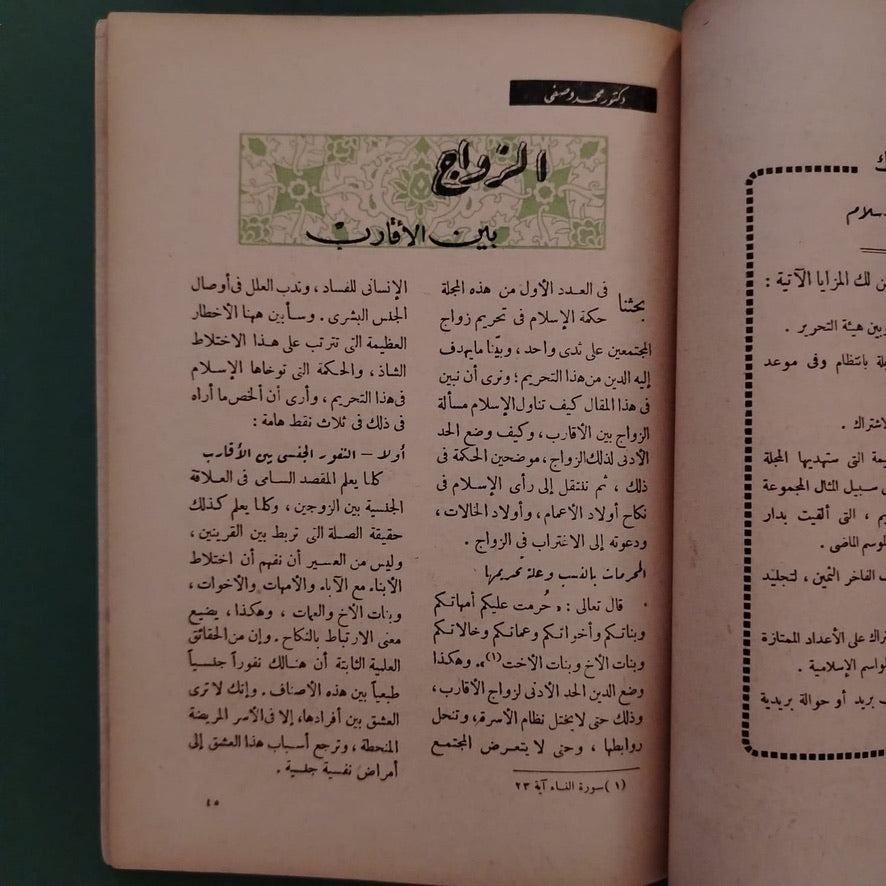 دكتور محمد وصفى
الزواج
بين الأقارب
بحثنا فى العدد الأول من هذه المجلة
حكمة الإسلام فى تحريم زواج
المجتمعين على ثدى واحد ، وبيّنا ما يهدف
إليه الدين من هذا التحريم ؛ ونرى أن نبين
فى هذا المقال كيف تناول الإسلام مسألة
الزواج بين الأقارب ، وكيف وضع الحد
الأدنى لذلك الزواج ، موضحين الحكمة فى
ذلك ، ثم ننتقل إلى رأى الإسلام فى
نكاح أولاد الأعمام ، وأولاد الخالات ،
ودعوته إلى الاغتراب فى الزواج .
المحرمات بالنسب وعلة تحريمها
قال تعالى : « حُرمت عليكم أمهاتكم
وبناتكم وأخواتكم وعماتكم وخالاتكم
وبنات الأخ وبنات الأخت (١) » . وهكذا
وضع الدين الحد الأدنى لزواج الأقارب ،
وذلك حتى لا يختل نظام الأسرة ، وتنحل
روابطها ، وحتى لا يتعرض المجتمع
(١) سورة النساء آية ٢٣
الإنسانى للفساد ، وتدب العلل فى أوصال
الجنس البشرى . وسأبين ههنا الأخطار
العظيمة التى تترتب على هذا الاختلاط
الشاذ ، والحكمة التى توخاها الإسلام
فى هذا التحريم ، وأرى أن ألخص ما أراه
فى ذلك فى ثلاث نقط هامة :
أولا — النفور الجنسى بين الأقارب
كلنا يعلم المقصد السامى فى العلاقة
الجنسية بين الزوجين ، وكلنا يعلم كذلك
حقيقة الصلة التى تربط بين القرينين ،
وليس من العسير أن نفهم أن اختلاط
الأبناء مع الآباء والأمهات والأخوات ،
وبنات الأخ والعمات ، وهكذا ، يضيع
معنى الارتباط بالنكاح . وإن من الحقائق
العلمية الثابتة أن هنالك نفوراً جنسياً
طبعياً بين هذه الأصناف . وإنك لا ترى
العشق بين أفرادها، إلا فى الأسر المريضة
المنحطة ، وترجع أسباب هذا العشق إلى
أمراض نفسية جنسية .
٤٥
ن لك المزايا الآتية :
وبين هيئة التحرير .
لة بانتظام وفى موعد
الاشتراك .
يمة التى ستهديها المجلة
سبيل المثال المجموعة
، التى ألقيت بدار
لموسم الماضى .
الفاخر الثمين ، لتجليد
راك على الأعداد الممتازة
واسم الإسلامية .
بريد أو حوالة بريدية